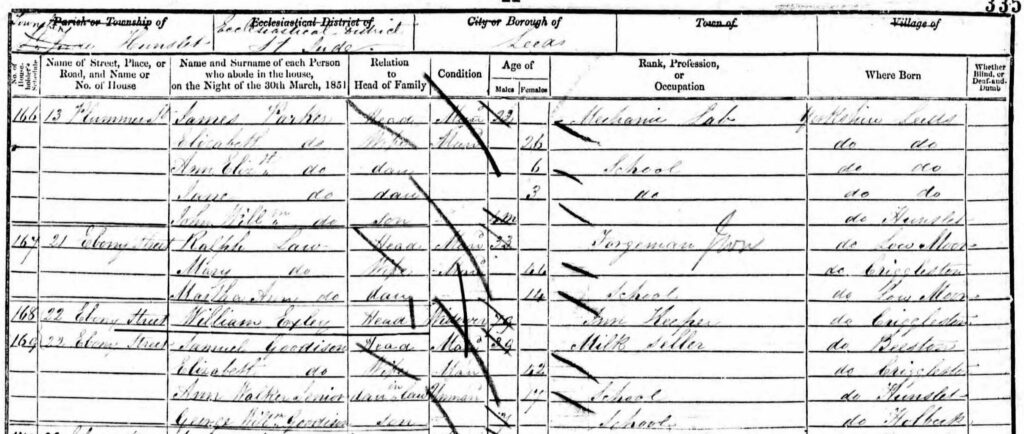 335
Parish or Township of Ecclesiastical District of City or Borough of Town of Village of
Hunslet Ecclesiastical District St Jude Leeds
No. of House-holder's Schedule Name of Street, Place, or Road, and Name or No. of House Name and Surname of each Person who abode in the house, on the Night of the 30th March, 1851 Relation to Head of Family Condition Age of Males Females Rank, Profession, or Occupation Where Born Whether Blind, or Deaf-and-Dumb
166 13 Plummer St James Parker Head Mar 22 Mechanic Lab Yorkshire Leeds
Elizabeth do Wife Mar 26 do do
Ann Elizth do daur 6 School do do
Jane do daur 3 do do do
John Willm do son do Hunslet
167 21 Ebony Street Ralph Law Head Mar Forgeman Iron do Low Moor
Mary do Wife Mar 44 do Criggleston
Martha Ann do daur 14 School do Low Moor
168 22 Ebony Street William Exley Head Widower 79 Keeper do Criggleston
169 22 Ebony Street Samuel Goodison Head Mar 39 Milk Seller do Beeston
Elizabeth do Wife Mar 42 do Criggleston
Ann Walker Senior daur in law Unmar 17 School do Hunslet
George Willm Goodison son School do Holbeck